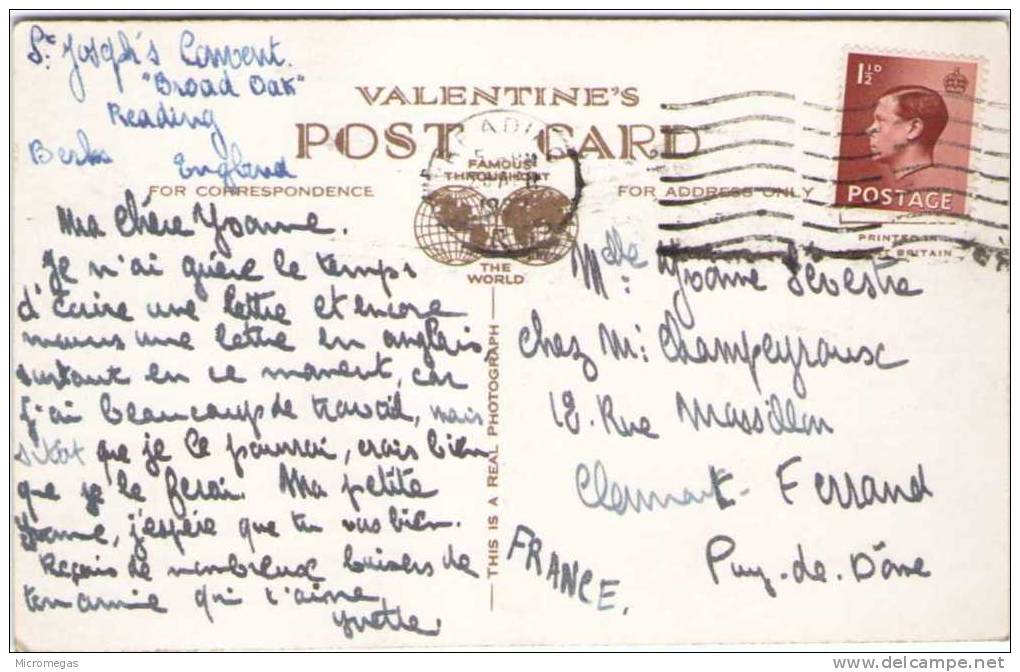 St Joseph's Convent.
"Broad Oak"
Reading
Berks
England
VALENTINE'S
POST CARD
FAMOUS
THROUGHOUT
THE
WORLD
FOR CORRESPONDENCE
FOR ADDRESS ONLY
1½D
POSTAGE
PRINTED IN
BRITAIN
THIS IS A REAL PHOTOGRAPH
Ma chère Yvonne.
Je n'ai guère le temps
d'écrire une lettre et encore
moins une lettre en anglais,
surtout en ce moment, car
j'ai beaucoup de travail, mais
sitôt que je le pourrai, crois bien
que je le ferai. Ma petite
Yvonne, j'espère que tu vas bien.
Reçois de nombreux baisers de
ton amie qui t'aime,
Yvette
Melle: Yvonne Sevestre
chez Mr: Champeyroux
18. Rue Massillon
Clermont-Ferrand
Puy-de-Dôme
FRANCE.
Micromegas
www.delcampe.net